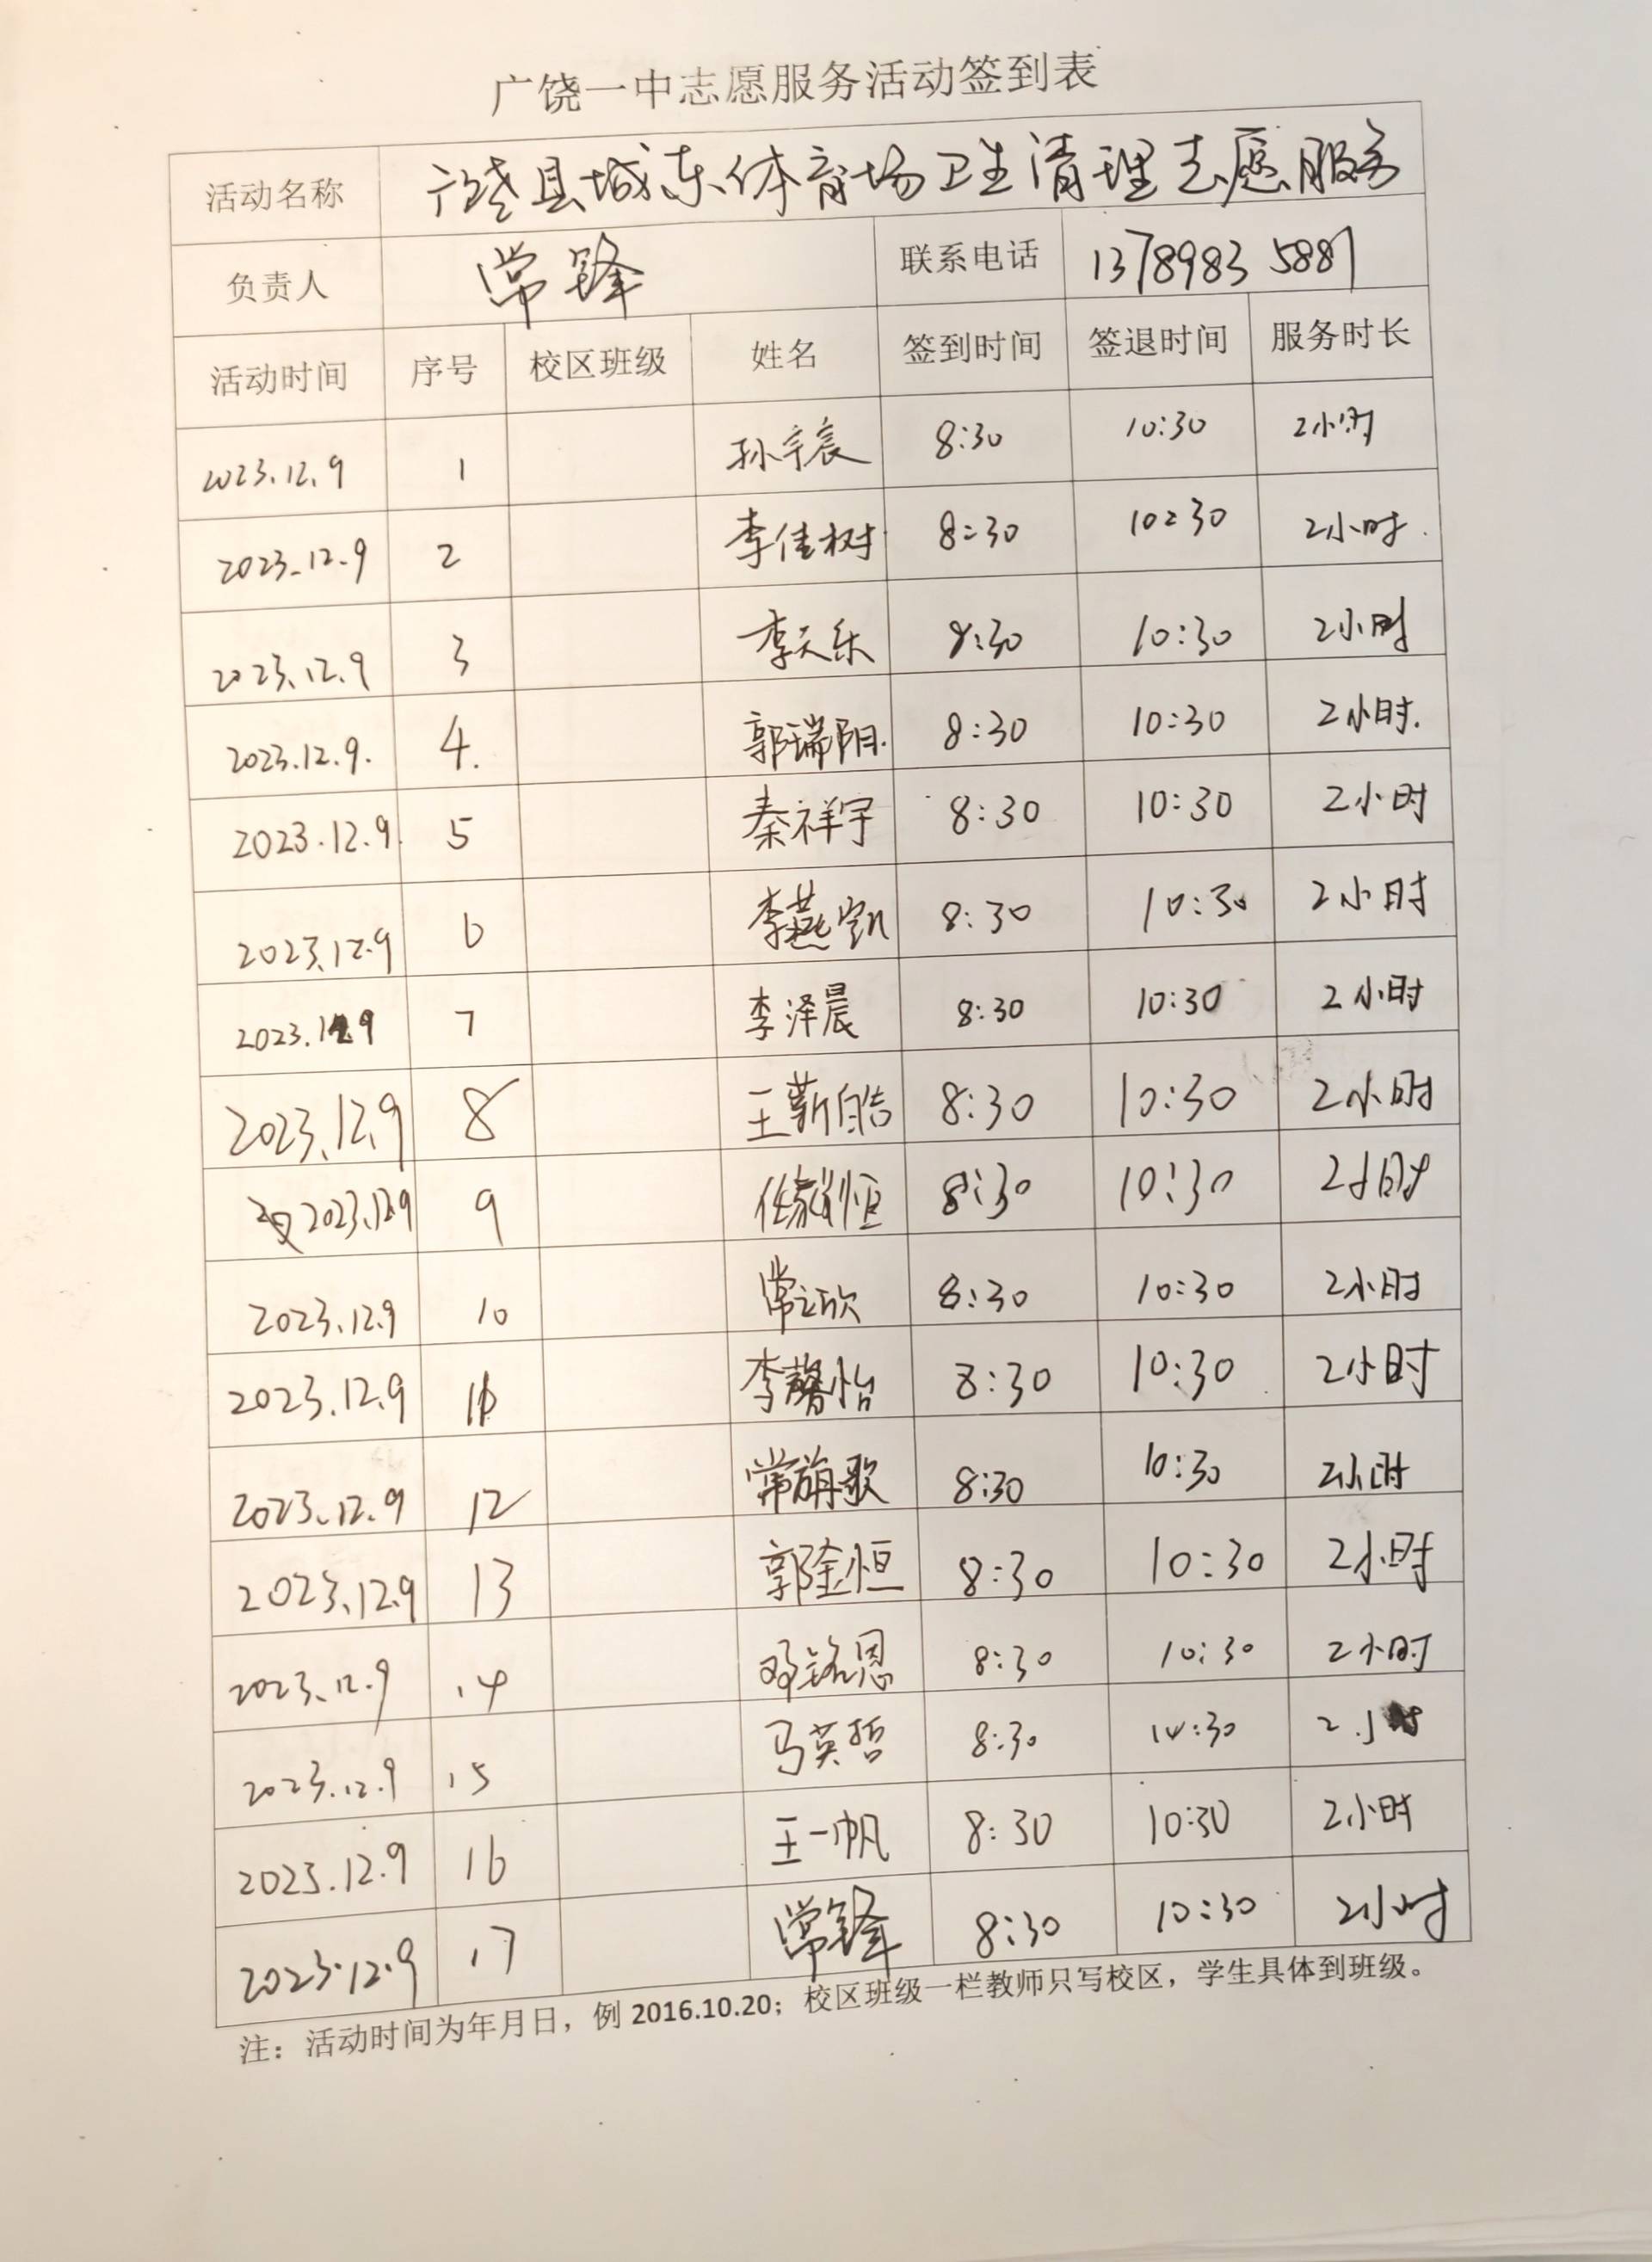 广饶一中志愿服务活动签到表
活动名称 广饶县城东体育场卫生清理志愿服务
负责人 常锋 联系电话 13789835887
活动时间 序号 校区班级 姓名 签到时间 签退时间 服务时长
2023.12.9 1 孙宇宸 8:30 10:30 2小时
2023.12.9 2 李佳树 8:30 10:30 2小时.
2023.12.9 3 李天乐 8:30 10:30 2小时
2023.12.9. 4. 郭瑞阳. 8:30 10:30 2小时.
2023.12.9. 5 秦祥宇 8:30 10:30 2小时
2023.12.9 6 李燕凯 8:30 10:30 2小时
2023.12.9 7 李泽晨 8:30 10:30 2小时
2023.12.9 8 王新皓 8:30 10:30 2小时
2023.12.9 9 8:30 10:30 2小时
2023.12.9 10 常立欣 8:30 10:30 2小时
2023.12.9 11 李馨怡 8:30 10:30 2小时
2023.12.9 12 常旗歌 8:30 10:30 2小时
2023.12.9 13 郭金恒 8:30 10:30 2小时
2023.12.9 14 邓铭恩 8:30 10:30 2小时
2023.12.9 15 马英哲 8:30 10:30 2小时
2023.12.9 16 王一帆 8:30 10:30 2小时
2023.12.9 17 常锋 8:30 10:30 2小时
注：活动时间为年月日，例 2016.10.20；校区班级一栏教师只写校区，学生具体到班级。